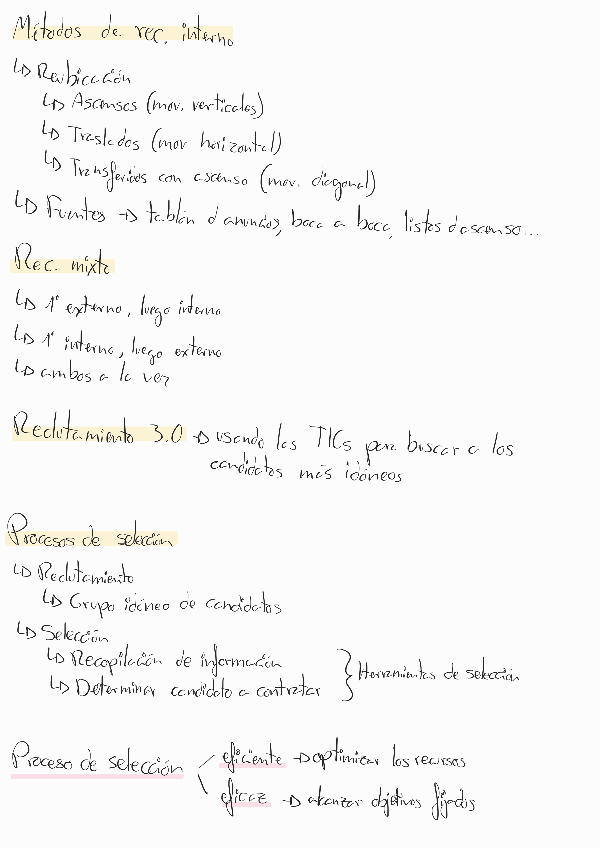 Métodos de rec. interno
↳ Reubicación
↳ Ascensos (mov. verticales)
↳ Traslados (mov horizontal)
↳ Transferidos con ascenso (mov. diagonal)
↳ Fuentes → tablón d'anuncios, boca a boca, listas d'ascenso...
Rec. mixto
↳ 1º externo, luego interno
↳ 1º interno, luego externo
↳ ambos a la vez
Reclutamiento 3.0 → usando las TICs para buscar a los
candidatos más idóneos
Procesos de selección
↳ Reclutamiento
↳ Grupo idóneo de candidatos
↳ Selección
↳ Recopilación de información
↳ Determinar candidato a contratar } Herramientas de selección
Proceso de selección
eficiente → optimizar los recursos
eficaz → alcanzar objetivos fijados